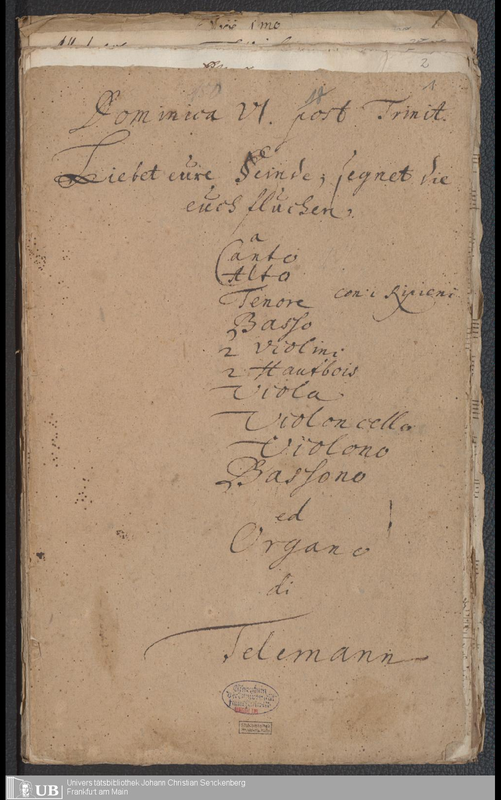 Viol 1mo
2
Dominica VI. post Trinit.
Liebet eure Feinde, segnet die
euch fluchen,
a
Canto
Alto
Tenore con i Ripieni
Basso
2 Violini
2 Hautbois
Viola
Violoncello
Violono
Bassono
ed
Organo
di
Telemann
UB Universitätsbibliothek Johann Christian Senckenberg
Frankfurt am Main